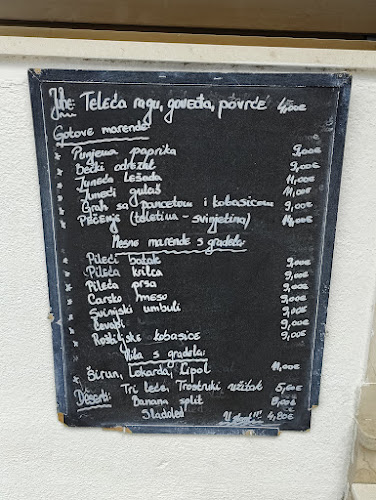 Juhe: Teleća ragu, goveđa, povrće 4,00€
Gotove marende:
* Punjena paprika 9,00€
* Bečki odrezak 9,00€
* Juneća lešada 11,00€
* Juneći gulaš 11,00€
* Grah sa pancetom i kobasicom 9,00€
* Pečenje (teletina - svinjetina) 14,00€
Mesne marende s gradela:
Pileći batak 9,00€
Pileća krilca 9,00€
Pileća prsa 9,00€
Carsko meso 9,00€
Svinjski umbuli 9,00€
Ćevapi 9,00€
Roštiljske kobasice 9,00€
Riba s gradela:
Širun, Lokarda, Cipol 11,00€
Deserti: Tri leće, Trostruki užitak 5,60€
Banana split 8,00€
Sladoled 4,80€